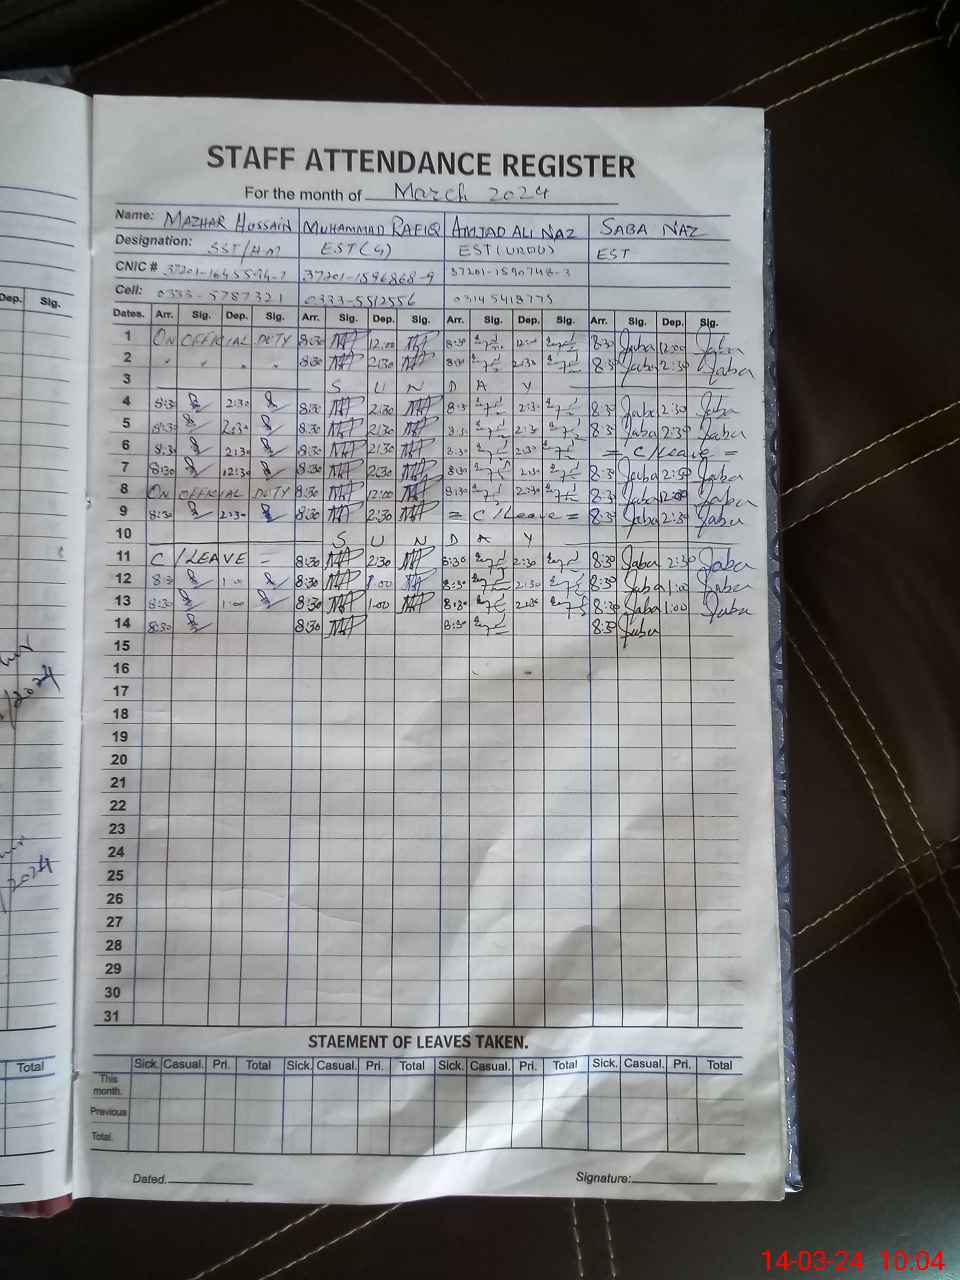 STAFF ATTENDANCE REGISTER
For the month of March 2024
Name: MAZHAR HUSSAIN MUHAMMAD RAFIQ AMJAD ALI NAZ SABA NAZ
Designation: SST/HM EST(G) EST(URDU) EST
CNIC # 37201-1596868-9 37201-1590748-3
Cell: 0333-5787321 0333-5512556 03145418775
Dep. Sig.
Dates. Arr. Sig. Dep. Sig. Arr. Sig. Dep. Sig. Arr. Sig. Dep. Sig. Arr. Sig. Dep. Sig.
1 ON OFFICIAL DUTY 8:30 12:00 8:30 12:00 8:30 Saba 12:00 Saba
2 " " " " 8:30 2:30 8:30 2:30 8:30 Saba 2:30 Saba
3 S U N D A Y
4 8:30 2:30 8:30 2:30 8:30 2:30 8:30 Saba 2:30 Saba
5 8:30 2:30 8:30 2:30 8:30 2:30 8:30 Saba 2:30 Saba
6 8:30 2:30 8:30 2:30 8:30 2:30 = C/Leave =
7 8:30 12:30 8:30 2:30 8:30 2:30 8:30 Saba 2:30 Saba
8 ON OFFICIAL DUTY 8:30 12:00 8:30 2:30 8:30 Saba 12:00 Saba
9 8:30 2:30 8:30 2:30 = C/Leave = 8:30 Saba 2:30 Saba
10 S U N D A Y
11 C/LEAVE = 8:30 2:30 8:30 2:30 8:30 Saba 2:30 Saba
12 8:30 1:00 8:30 1:00 8:30 2:30 8:30 Saba 1:00 Saba
13 8:30 1:00 8:30 1:00 8:30 2:30 8:30 Saba 1:00 Saba
14 8:30 8:30 8:30 8:30 Saba
15
16
17
18
19
20
21
22
23
24
25
26
27
28
29
30
31
/2024
/2024
STAEMENT OF LEAVES TAKEN.
Total
Sick. Casual. Pri. Total Sick. Casual. Pri. Total Sick. Casual. Pri. Total Sick. Casual. Pri. Total
This month.
Previous
Total.
Dated. Signature:
14-03-24 10:04